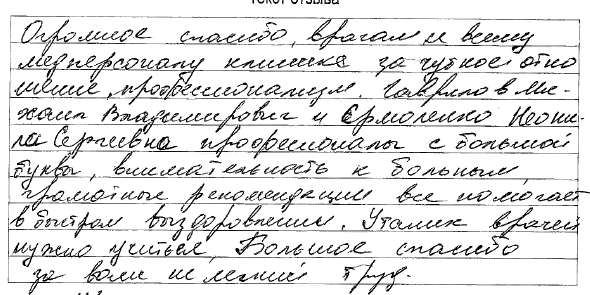 Текст отзыва
Огромное спасибо, врачам и всему
медперсоналу клиники за чуткое отно
шение, профессионализм. Гаврилов Ми-
хаил Владимирович и Ермоленко Неони-
ла Сергеевна профессионалы с большой
буквы, внимательность к больным,
грамотные рекомендации все помогает
в быстром выздоровлении. У таких врачей
нужно учиться, Большое спасибо
за ваш не легкий труд.